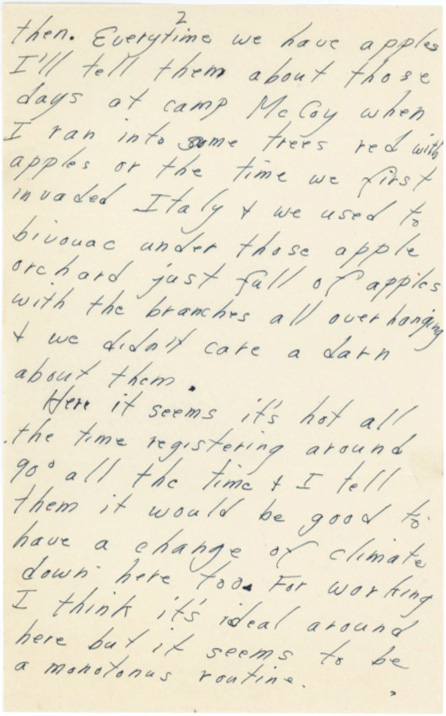 2
then. Everytime we have apples
I'll tell them about those
days at camp McCoy when
I ran into some trees red with
apples or the time we first
invaded Italy & we used to
bivouac under those apple
orchard just full of apples
with the branches all overhanging
& we didn't care a darn
about them.
Here it seems it's hot all
the time registering around
90° all the time & I tell
them it would be good to
have a change of climate
down here too. For working
I think it's ideal around
here but it seems to be
a monotonus routine.